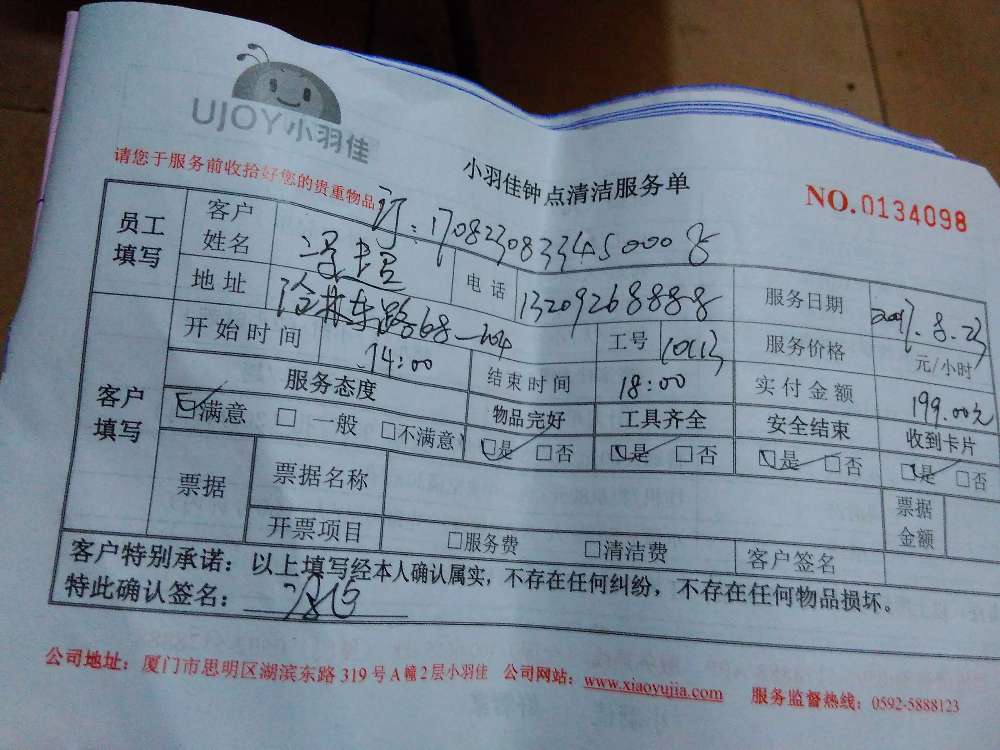 UJOY小羽佳
小羽佳钟点清洁服务单
NO.0134098
请您于服务前收拾好您的贵重物品
订:170823083345000号
员工填写
客户姓名
电话 13209268888
服务日期 2017.8.23
地址 冷林东路68-204
工号 10113
服务价格 元/小时
客户填写
开始时间 14:00
结束时间 18:00
实付金额 199.00元
服务态度 物品完好 工具齐全 安全结束 收到卡片
☑满意 □一般 □不满意
☑是 □否 ☑是 □否 ☑是 □否 ☑是 □否
票据
票据名称
票据金额
开票项目 □服务费 □清洁费 客户签名
客户特别承诺:以上填写经本人确认属实,不存在任何纠纷,不存在任何物品损坏。
特此确认签名:
公司地址:厦门市思明区湖滨东路319号A幢2层小羽佳 公司网站:www.xiaoyujia.com 服务监督热线:0592-5888123